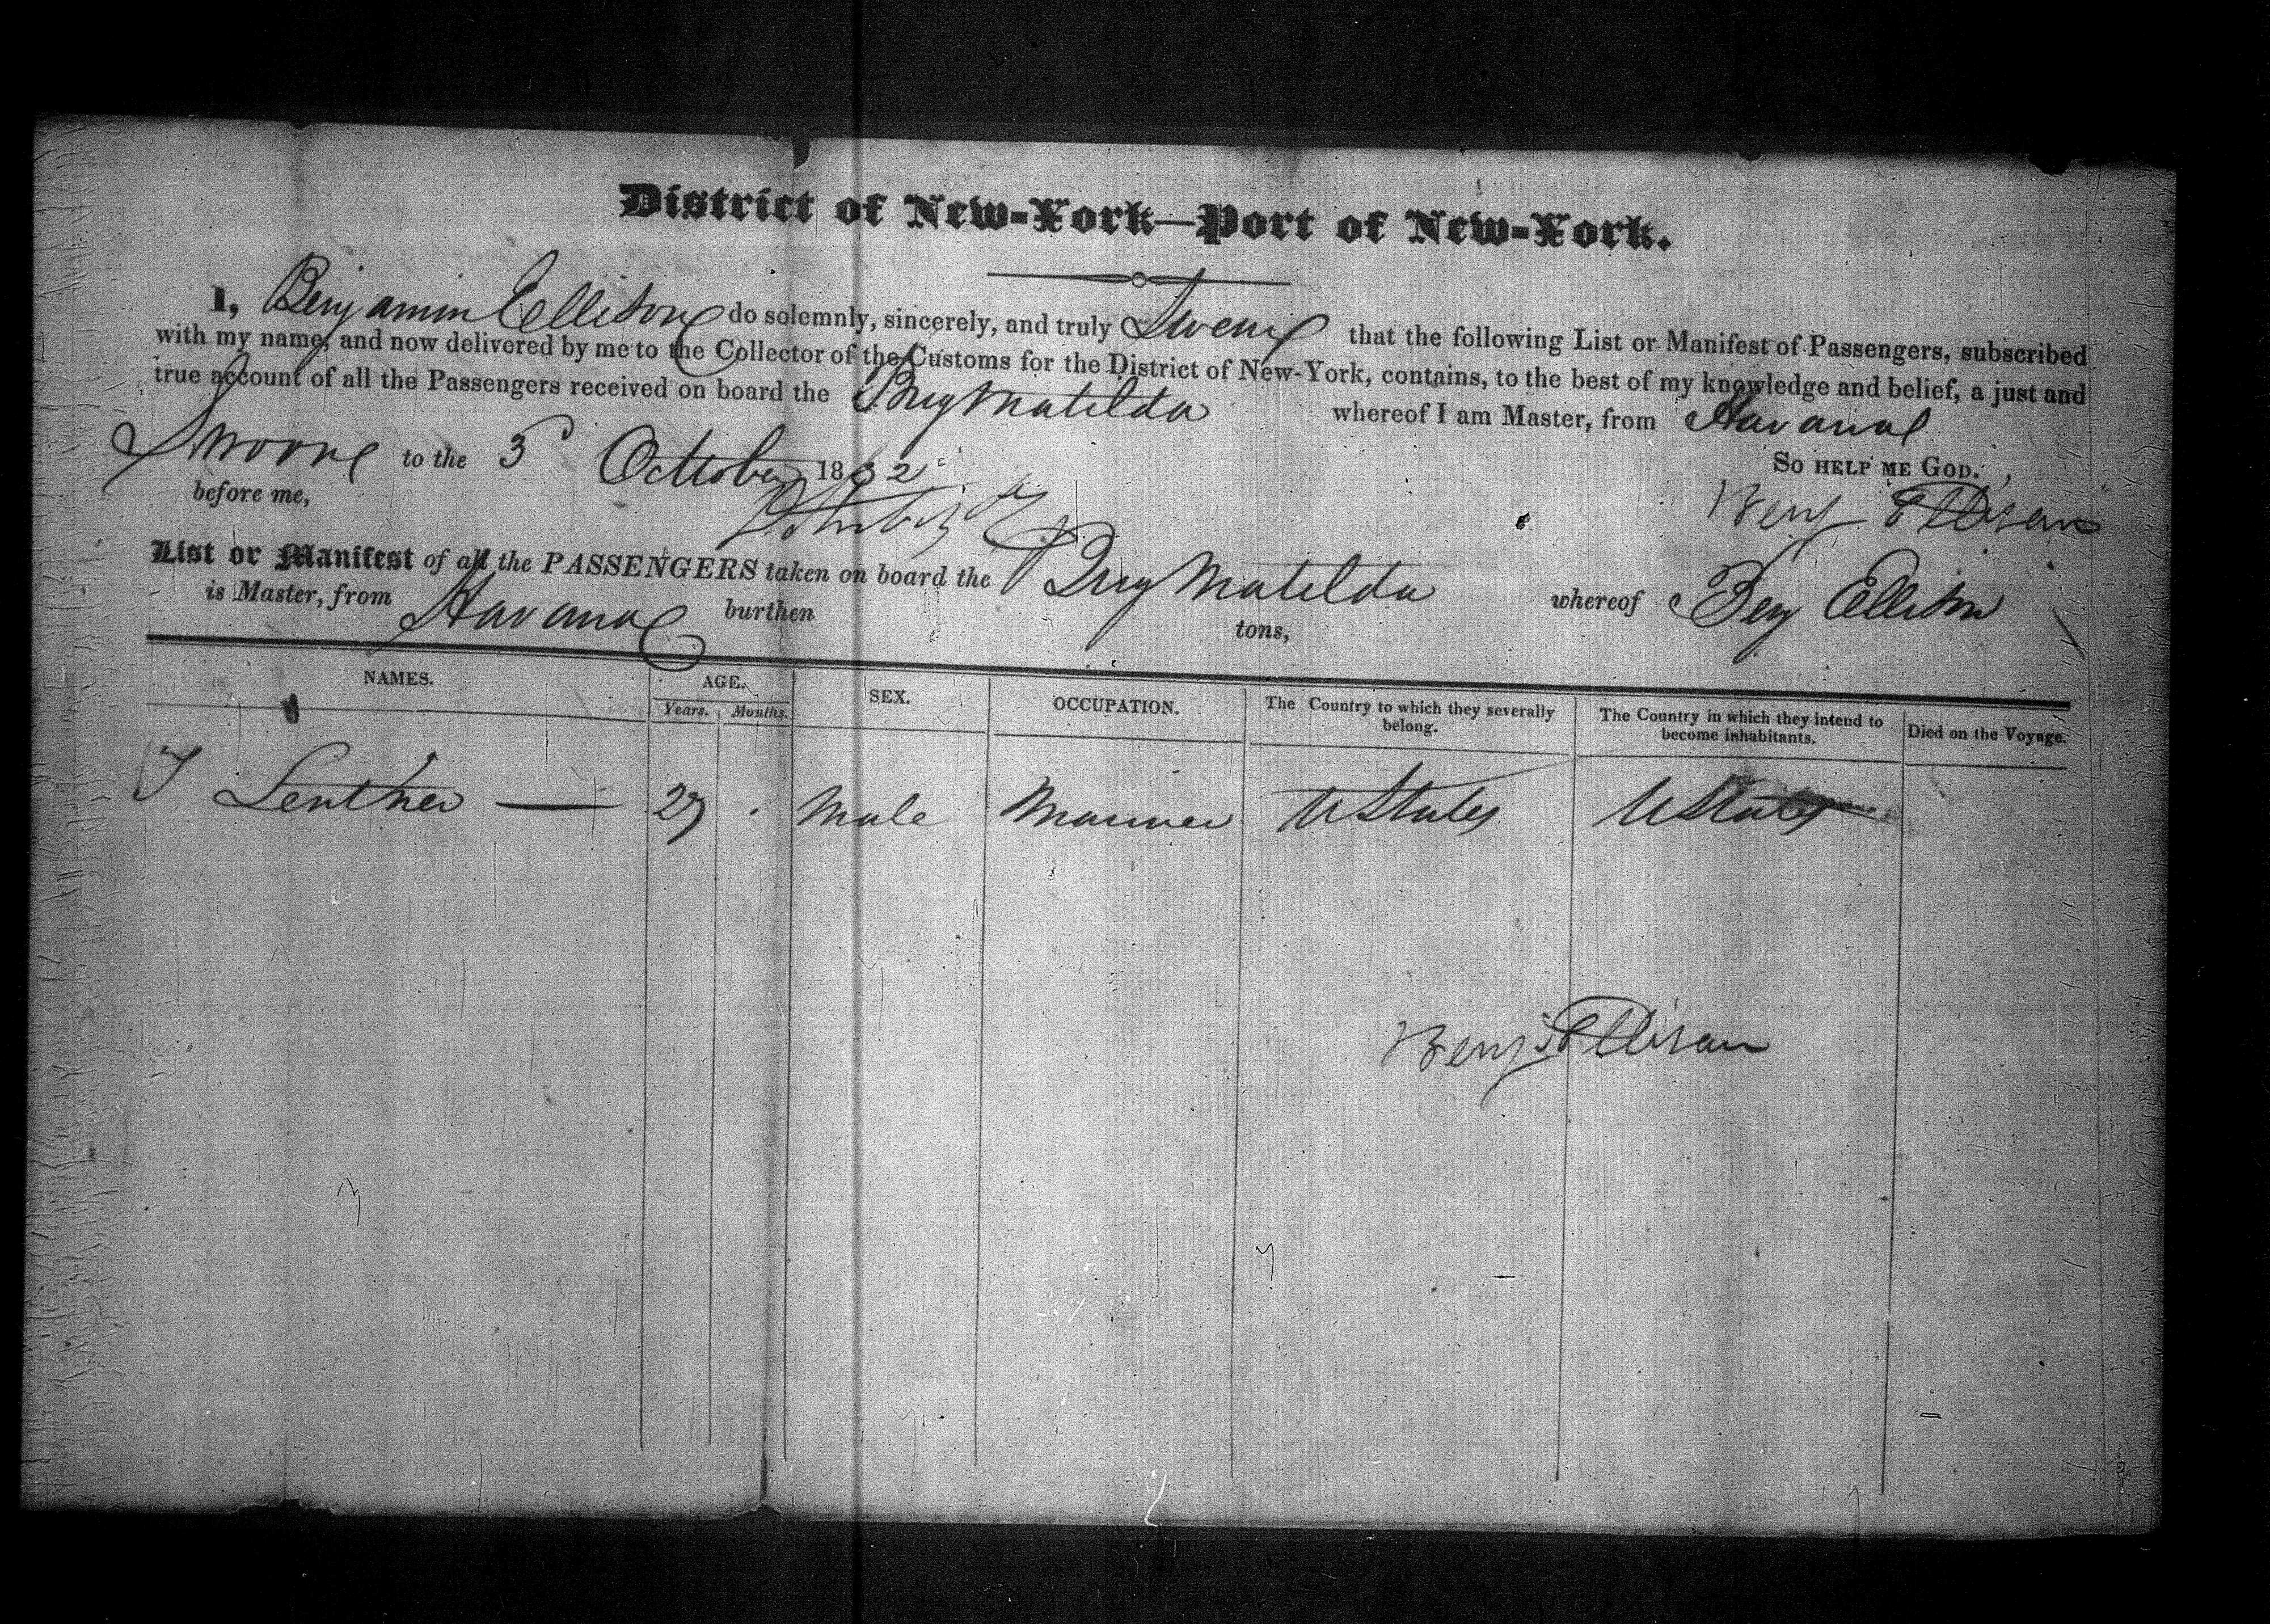 District of New-York—Port of New-York.
I, Benjamin Ellison do solemnly, sincerely, and truly Swear that the following List or Manifest of Passengers, subscribed
with my name, and now delivered by me to the Collector of the Customs for the District of New-York, contains, to the best of my knowledge and belief, a just and
true account of all the Passengers received on board the Brig Matilda whereof I am Master, from Havana
Sworne to the 3 October 1832
So HELP ME GOD.
before me,
Benj Ellison
List or Manifest of all the PASSENGERS taken on board the Brig Matilda whereof Benj Ellison
is Master, from Havana burthen tons,
NAMES. AGE. SEX. OCCUPATION. The Country to which they severally belong. The Country in which they intend to become inhabitants. Died on the Voyage.
Years. Months.
Male Mariner U States U States
Benj Ellison